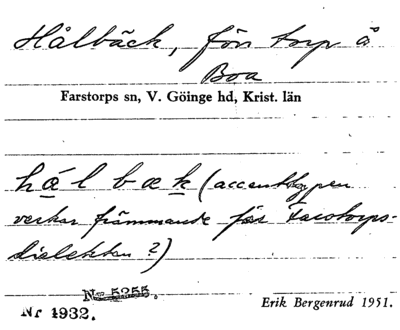 Hålbäck, förs. torp å
Boa
Farstorps sn, V. Göinge hd, Krist. län
hål bæk (accenttypen
verkar främmande för Farstorps-
dialekten?)
No 5255.
Nr 1932.
Erik Bergenrud 1951.